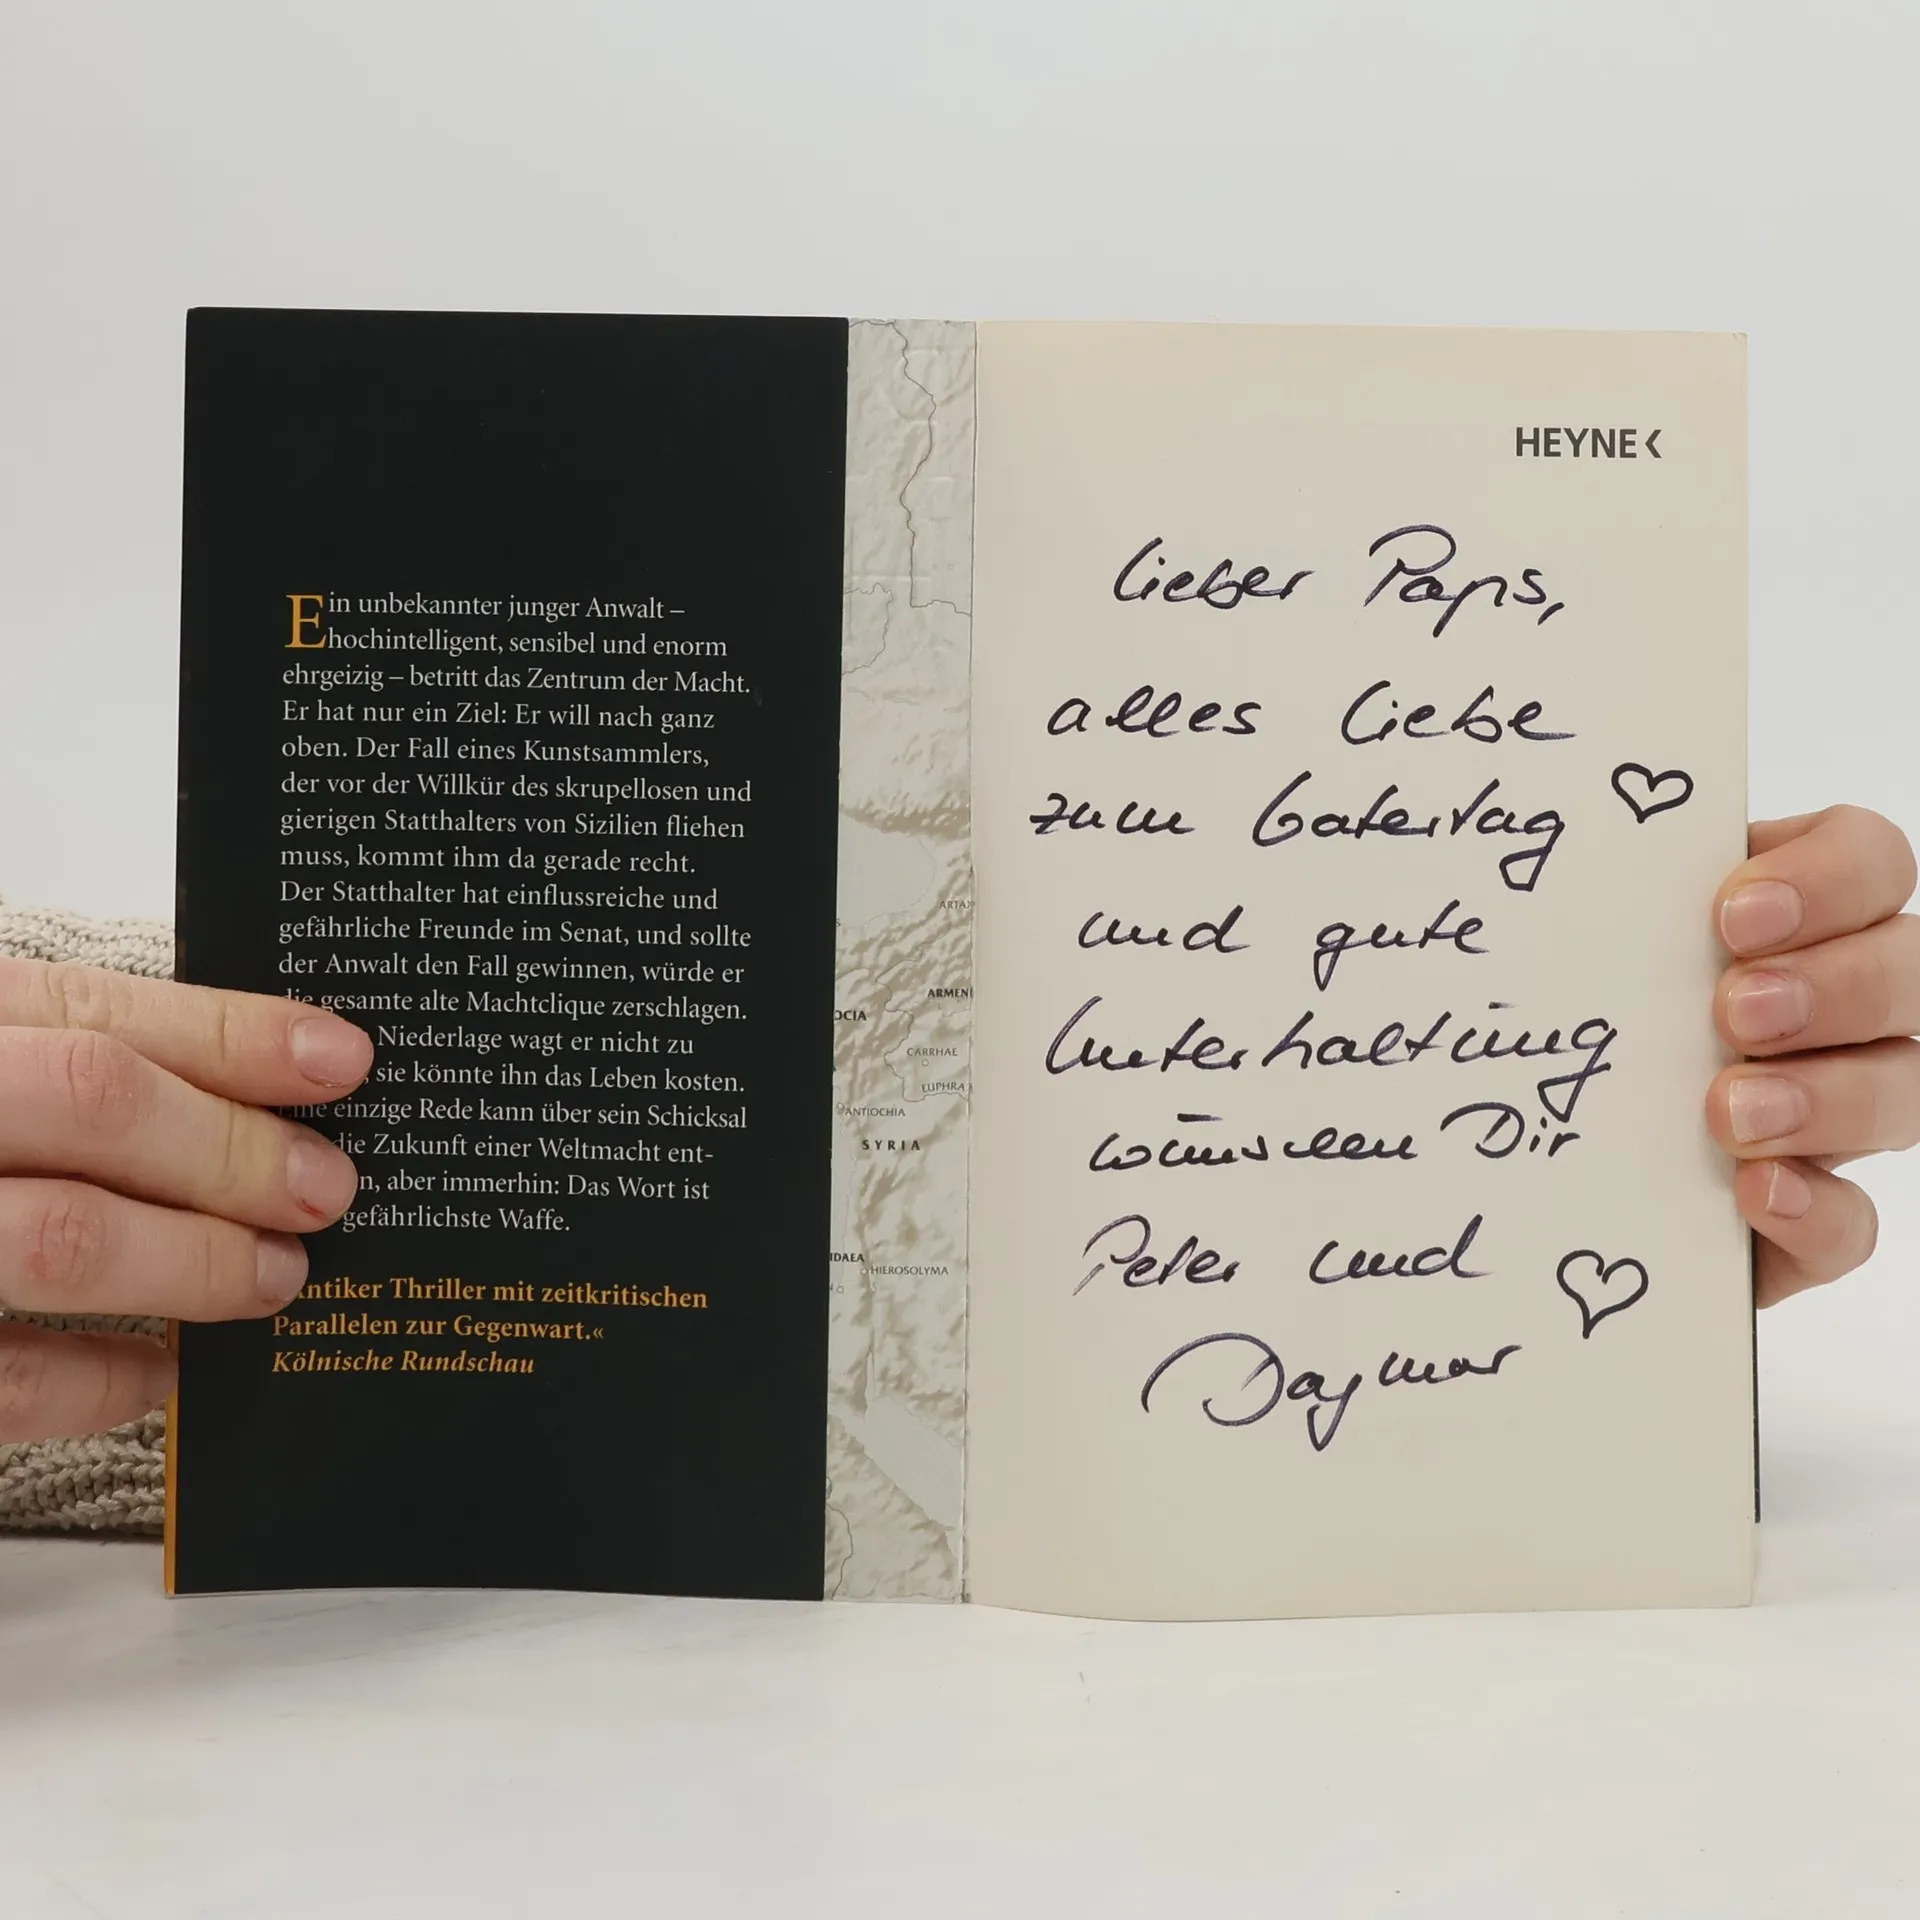 Ein unbekannter junger Anwalt –
hochintelligent, sensibel und enorm
ehrgeizig – betritt das Zentrum der Macht.
Er hat nur ein Ziel: Er will nach ganz
oben. Der Fall eines Kunstsammlers,
der vor der Willkür des skrupellosen und
gierigen Statthalters von Sizilien fliehen
muss, kommt ihm da gerade recht.
Der Statthalter hat einflussreiche und
gefährliche Freunde im Senat, und sollte
der Anwalt den Fall gewinnen, würde er
die gesamte alte Machtclique zerschlagen.
Niederlage wagt er nicht zu
, sie könnte ihn das Leben kosten.
Eine einzige Rede kann über sein Schicksal
die Zukunft einer Weltmacht ent-
n, aber immerhin: Das Wort ist
gefährlichste Waffe.
ntiker Thriller mit zeitkritischen
Parallelen zur Gegenwart.«
Kölnische Rundschau
ARTAX
ARMENI
OCIA
CARRHAE
EUPHRA
ANTIOCHIA
SYRIA
IDAEA
HIEROSOLYMA
HEYNE
Lieber Paps,
alles Liebe
zum Vatertag
und gute
Unterhaltung
wünschen Dir
Peter und
Dagmar